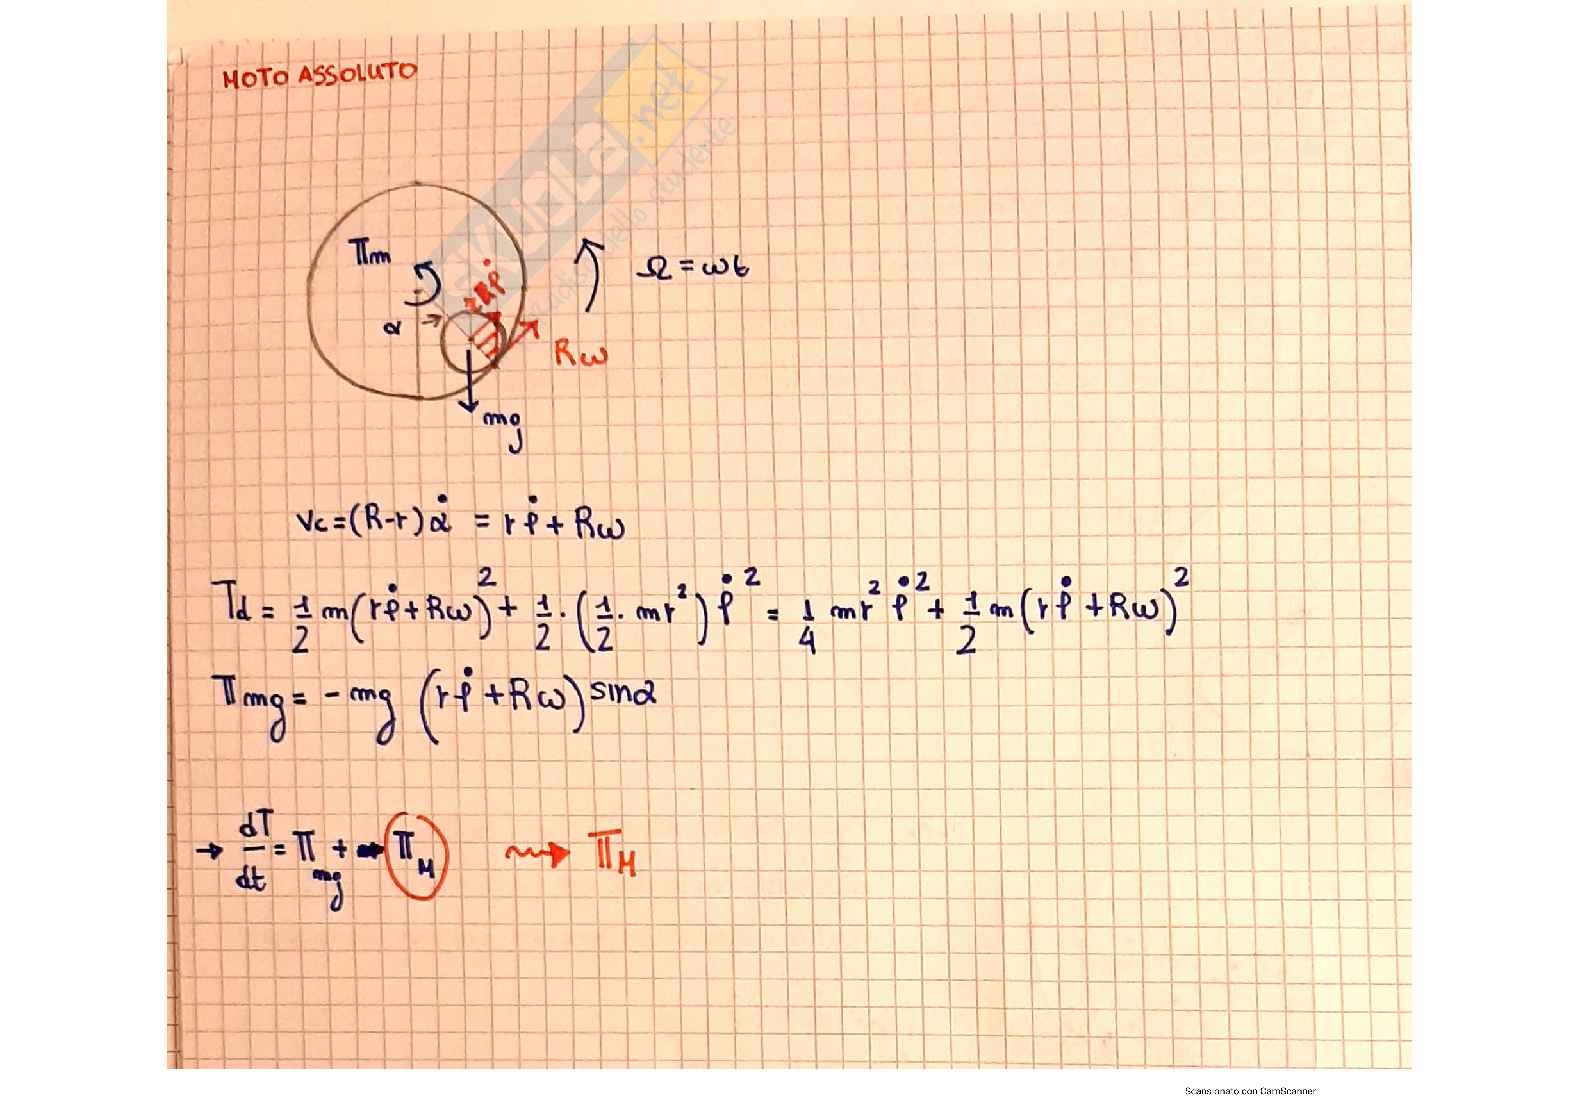 MOTO ASSOLUTO
SKUOLA.net
dello studente
Πm
α
Ω = ωt
Rω
mg
Vc = (R-r)α̇ = rφ̇ + Rω
Td = 1/2 m(rφ̇ + Rω)² + 1/2 · (1/2 · mr²) φ̇² = 1/4 mr² φ̇² + 1/2 m(rφ̇ + Rω)²
Πmg = - mg (rφ̇ + Rω) sinα
→ dT/dt = Πmg + ΠM ⇝ ΠM
Scansionato con CamScanner